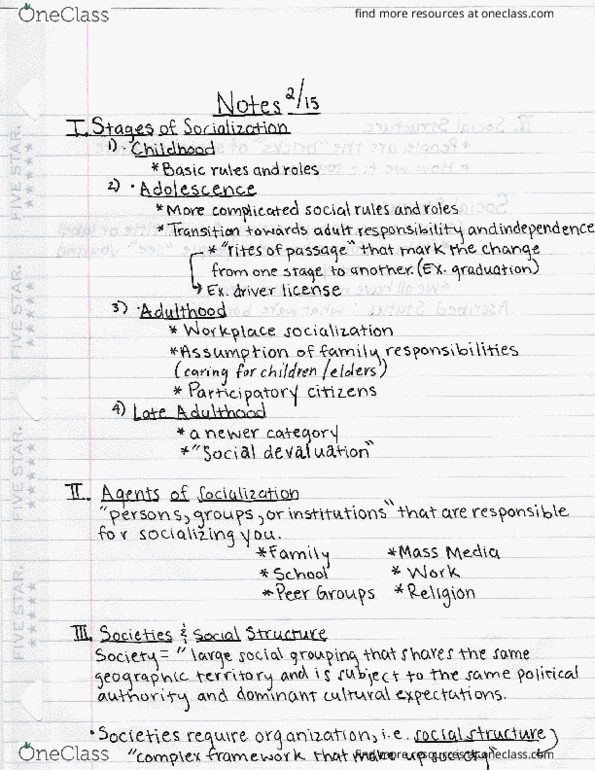 OneClass
find more resources at oneclass.com
Notes 2/15
I. Stages of Socialization
1) · Childhood
* Basic rules and roles
2) · Adolescence
* More complicated social rules and roles
* Transition towards adult responsibility and independence
* "rites of passage" that mark the change
from one stage to another. (Ex. graduation)
Ex. driver license
3) · Adulthood
* Workplace socialization
* Assumption of family responsibilities
(caring for children /elders)
* Participatory citizens
4) Late Adulthood
* a newer category
* "Social devaluation"
II. Agents of Socialization
"persons, groups, or institutions" that are responsible
for socializing you.
* Family * Mass Media
* School * Work
* Peer Groups * Religion
III. Societies & Social Structure
Society = " large social grouping that shares the same
geographic territory and is subject to the same political
authority and dominant cultural expectations.
• Societies require organization, i.e. social structure
"complex framework that make up society"
OneClass
find more resources at oneclass.com
FIVE STAR.
FIVE STAR.
FIVE STAR.
FIVE STAR.